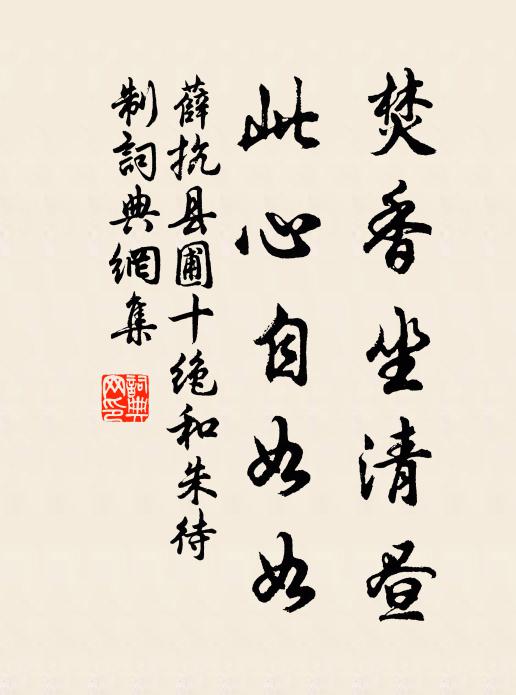 焚香坐清昼
此心自如如
薛抗县圃十绝和朱待
制词典網集
詞典網印